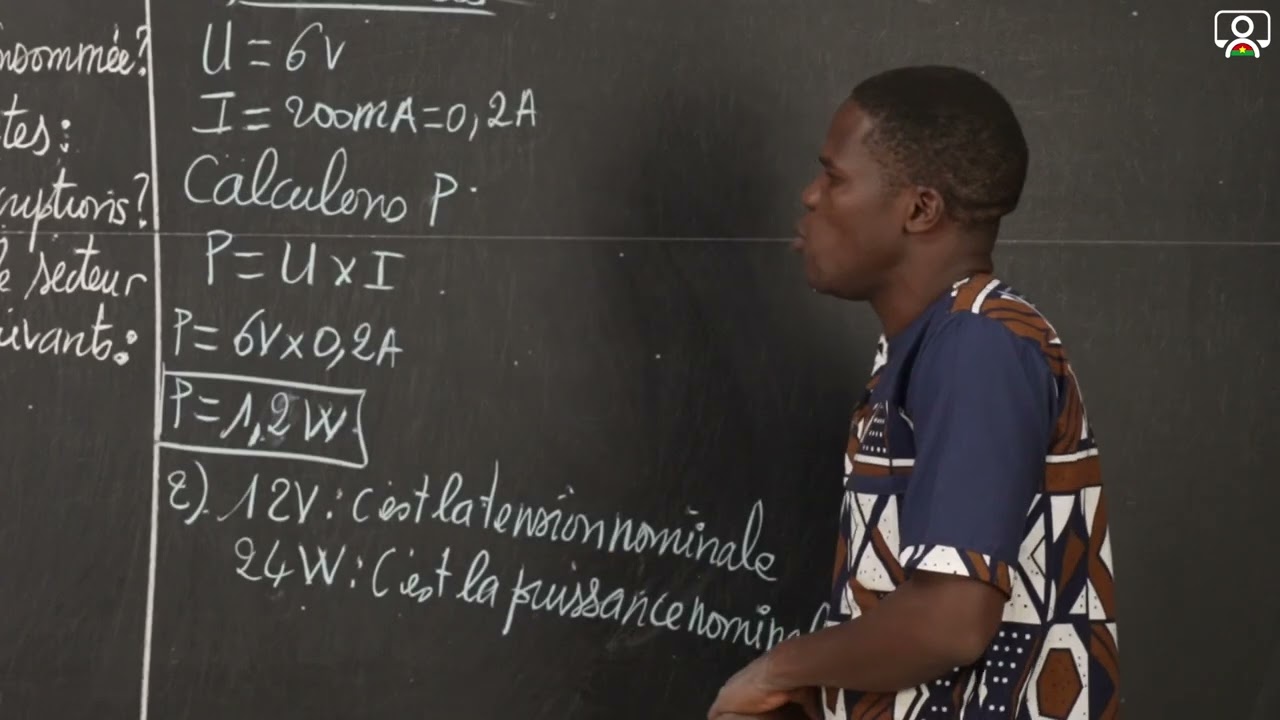 nsommée?
tes:
ruptions?
le secteur
uivants:
U = 6V
I = 200mA = 0,2A
Calculons P.
P = U x I
P = 6V x 0,2A
P = 1,2 W
2). 12V : C'est la tension nominale
24 W : C'est la puissance nominal